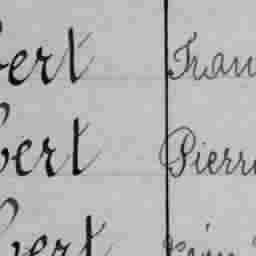 bert Fran
bert Pierre
bert